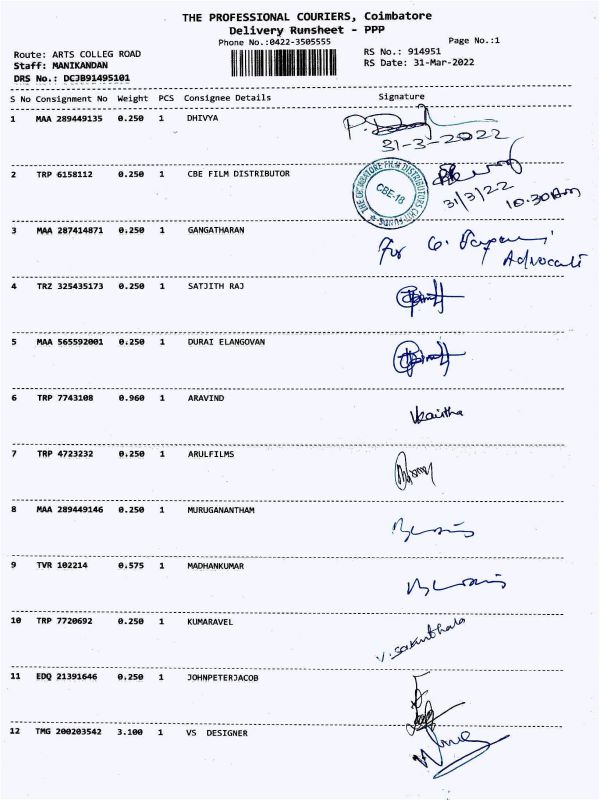 THE PROFESSIONAL COURIERS, Coimbatore
Delivery Runsheet - PPP
Phone No.:0422-3505555
Page No.:1
Route: ARTS COLLEG ROAD
RS No.: 914951
Staff: MANIKANDAN
RS Date: 31-Mar-2022
DRS No.: DCJB91495101
S No Consignment No Weight PCS Consignee Details Signature
1 MAA 289449135 0.250 1 DHIVYA
31-3-2022
2 TRP 6158112 0.250 1 CBE FILM DISTRIBUTOR
CBE-18
31/3/22
10.30am
3 MAA 287414871 0.250 1 GANGATHARAN
for G.
Advocate
4 TRZ 325435173 0.250 1 SATJITH RAJ
5 MAA 565592001 0.250 1 DURAI ELANGOVAN
6 TRP 7743108 0.960 1 ARAVIND
7 TRP 4723232 0.250 1 ARULFILMS
8 MAA 289449146 0.250 1 MURUGANANTHAM
9 TVR 102214 0.575 1 MADHANKUMAR
10 TRP 7720692 0.250 1 KUMARAVEL
V. Sakunthala
11 EDQ 21391646 0.250 1 JOHNPETERJACOB
12 TMG 200203542 3.100 1 VS DESIGNER